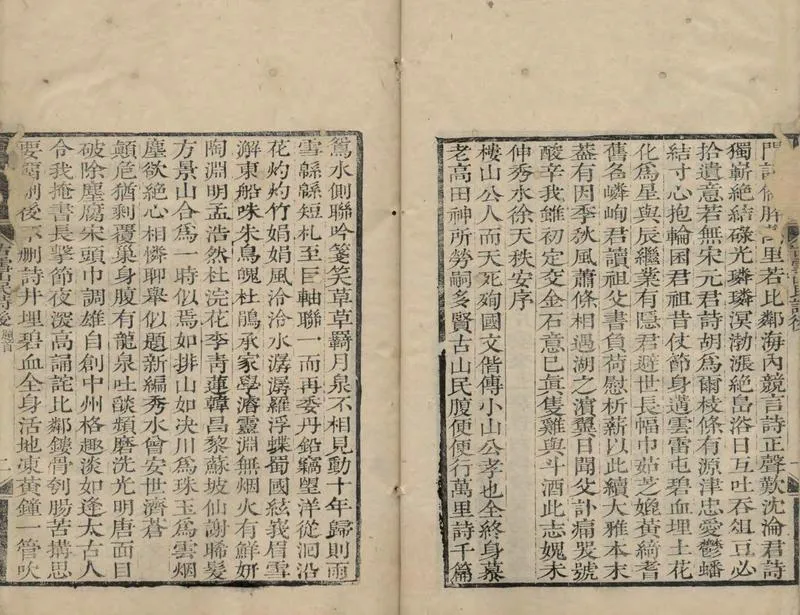 里若比鄰海內競言詩正聲歎沈淪君詩
獨嶄絕結碌光璘璘溟渤漲絕島浴日互吐吞俎豆必
拾遺意若無宋元君詩胡為爾枝條有源津忠愛鬱蟠
結寸心抱輪囷君祖昔仗節身遘雲雷屯碧血埋土花
化為星與辰繼業有隱君避世長幅巾茹芝媲黃綺耆
舊名嶙峋君讀祖父書負荷慰析薪以此續大雅本末
藎有因季秋風蕭條相遇湖之濱冀日聞父訃痛哭號
酸辛我雖初定交金石意已眞隻雞與斗酒此志媿未
伸秀水徐天秩安序
樓山公人而天死殉國文偕傳小山公孝也全終身慕
老高田神所勞嗣多賢古山民履便便行萬里詩千篇
鴛水側聯吟箋笑草草羇月泉不相見動十年歸則雨
雪緜緜短札至巨軸聯一而再委丹鉛竊朢洋從洄沿
花灼灼竹娟娟風洽洽水潺潺羅浮蝶蜀國絃峩眉雪
澥東船咮朱鳥魄杜鵑承家學濬靈淵無烟火有鮮姸
陶淵明孟浩然杜浣花李靑蓮韓昌黎蘇坡仙謝晞髮
方景山合爲一時似焉如排山如决川爲珠玉爲雲烟
塵欲絕心相憐聊舉似題新編秀水曾安世濟蒼
顛危猶剩覆巢身腹有龍泉吐燄頻磨洗光明唐面目
破除塵腐宋頭巾調雄自創中州格趣淡如逢太古人
令我掩書長擊節夜深高誦詫比鄰鏤骨刳腸苦搆思
要刪後不刪詩井埋碧血全身活地凍黃鐘一管吹
二